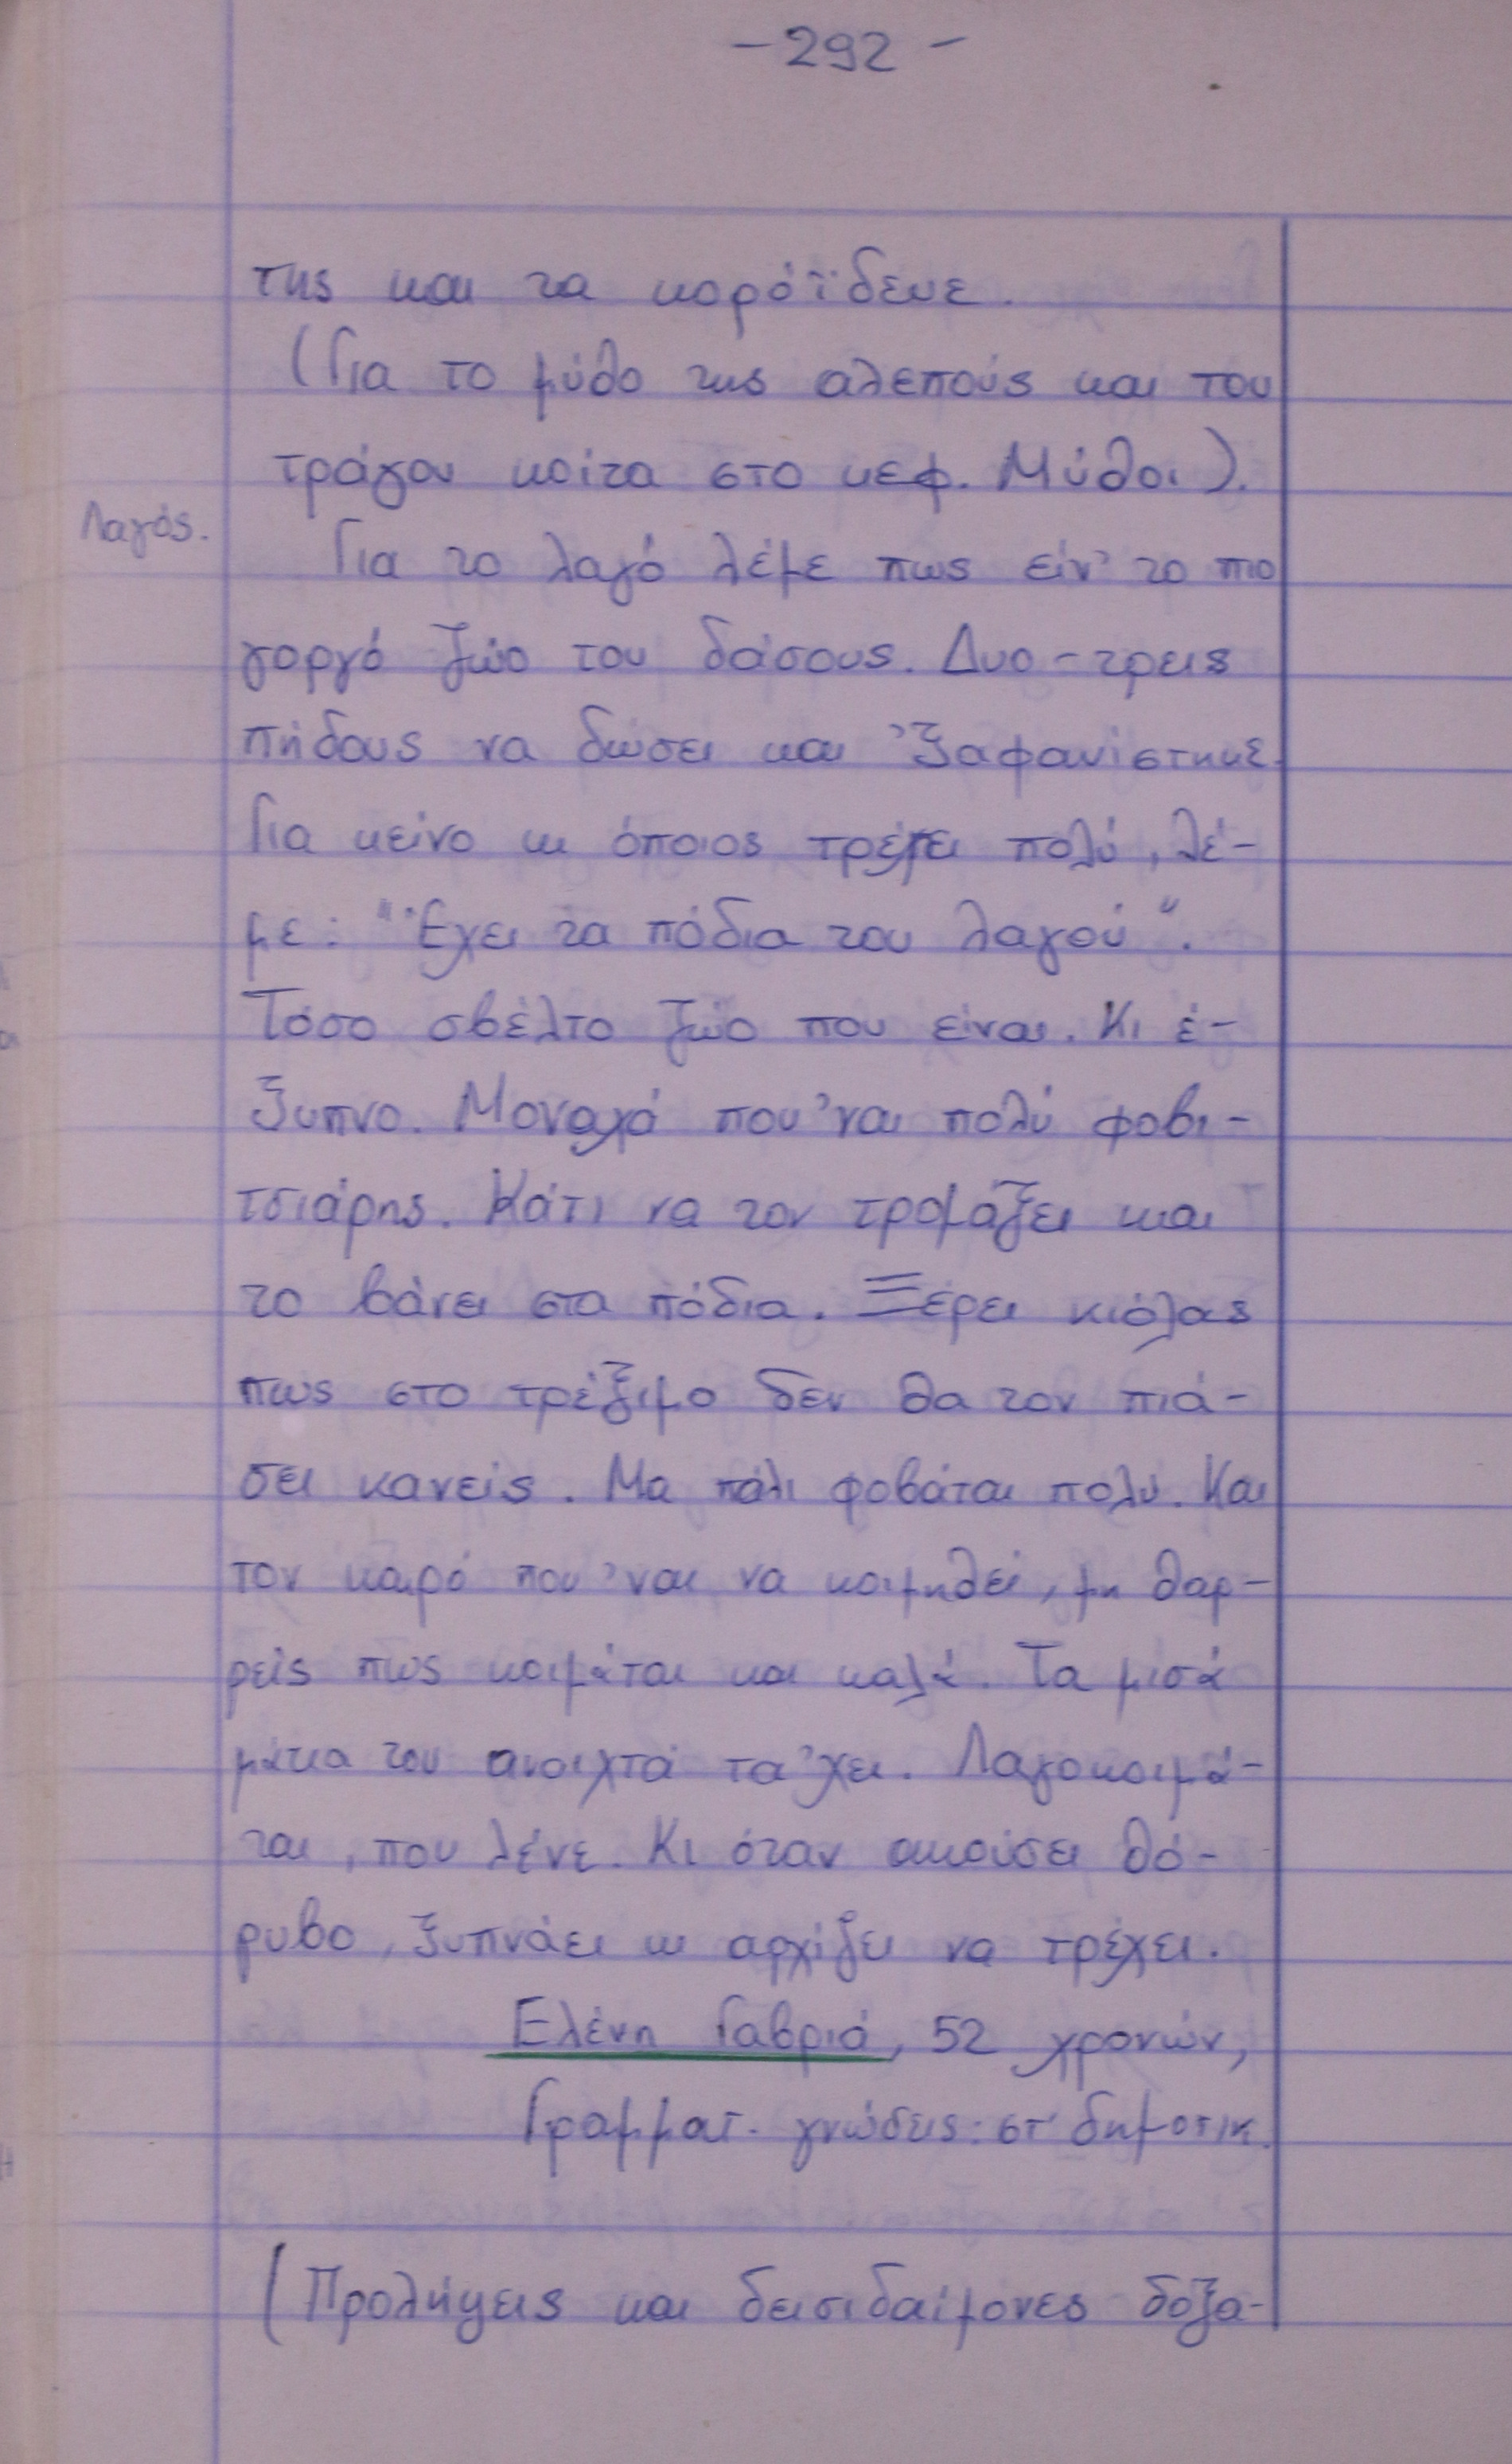 -292-
της και τα κορόϊδευε.
(Για το μύθο της αλεπούς και του
τράγου κοίτα στο κεφ. Μύθοι).
Λαγός.
Για το λαγό λέμε πως είν' το πιο
γοργό ζώο του δάσους. Δυο-τρεις
πήδους να δώσει και 'ξαφανίστηκε.
Για κείνο κι όποιος τρέχει πολύ, λέ-
με: "Έχει τα πόδια του λαγού".
Τόσο σβέλτο ζώο που είναι. Κι έ-
ξυπνο. Μοναχά που 'ναι πολύ φοβι-
τσιάρης. Κάτι να τον τρομάξει και
το βάνει στα πόδια. Ξέρει κιόλας
πως στο τρέξιμο δεν θα τον πιά-
σει κανείς. Μα πάλι φοβάται πολύ. Και
τον καιρό που 'ναι να κοιμηθεί, μη θαρ-
ρείς πως κοιμάται και καλά. Τα μισά
μάτια του ανοιχτά τα 'χει. Λαγοκοιμά-
ται, που λένε. Κι όταν ακούσει θό-
ρυβο, ξυπνάει κι αρχίζει να τρέχει.
Ελένη Γαβριά, 52 χρονών,
Γραμματ. γνώσεις: στ' δημοτικ.
(Προλήψεις και δεισιδαίμονες δοξα-